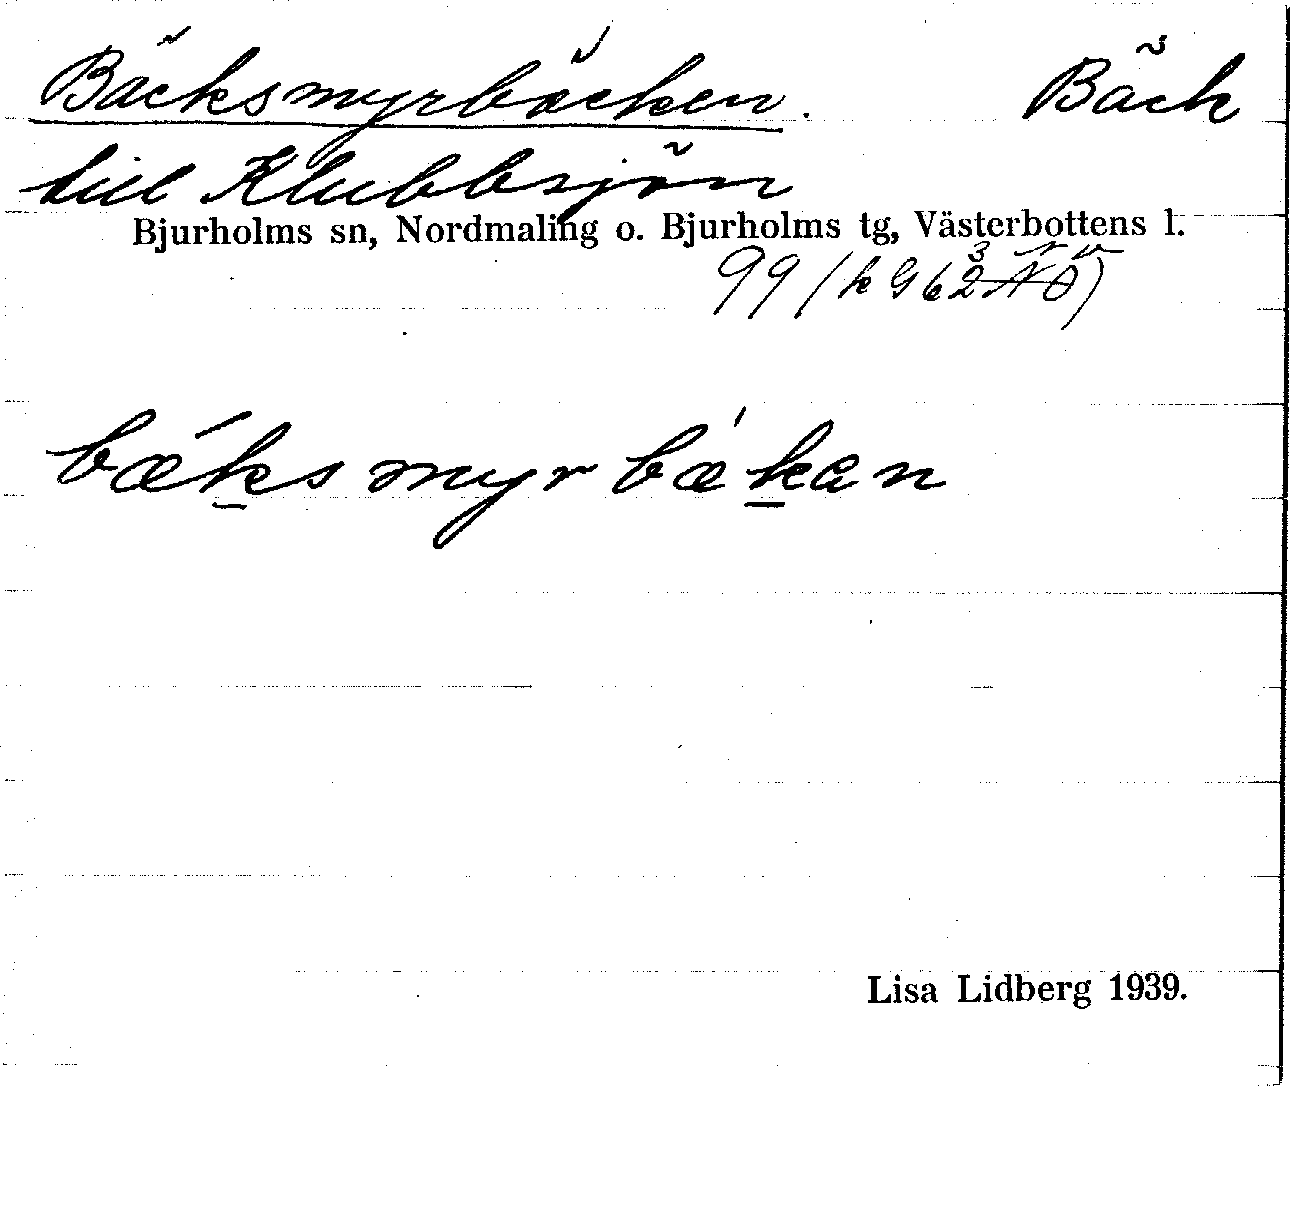 Bäcksmyrbäcken. Bäck
till Klubbsjön
Bjurholms sn, Nordmaling o. Bjurholms tg, Västerbottens l.
99 (k G 6
bæ´ksmyrbæ`kan
Lisa Lidberg 1939.